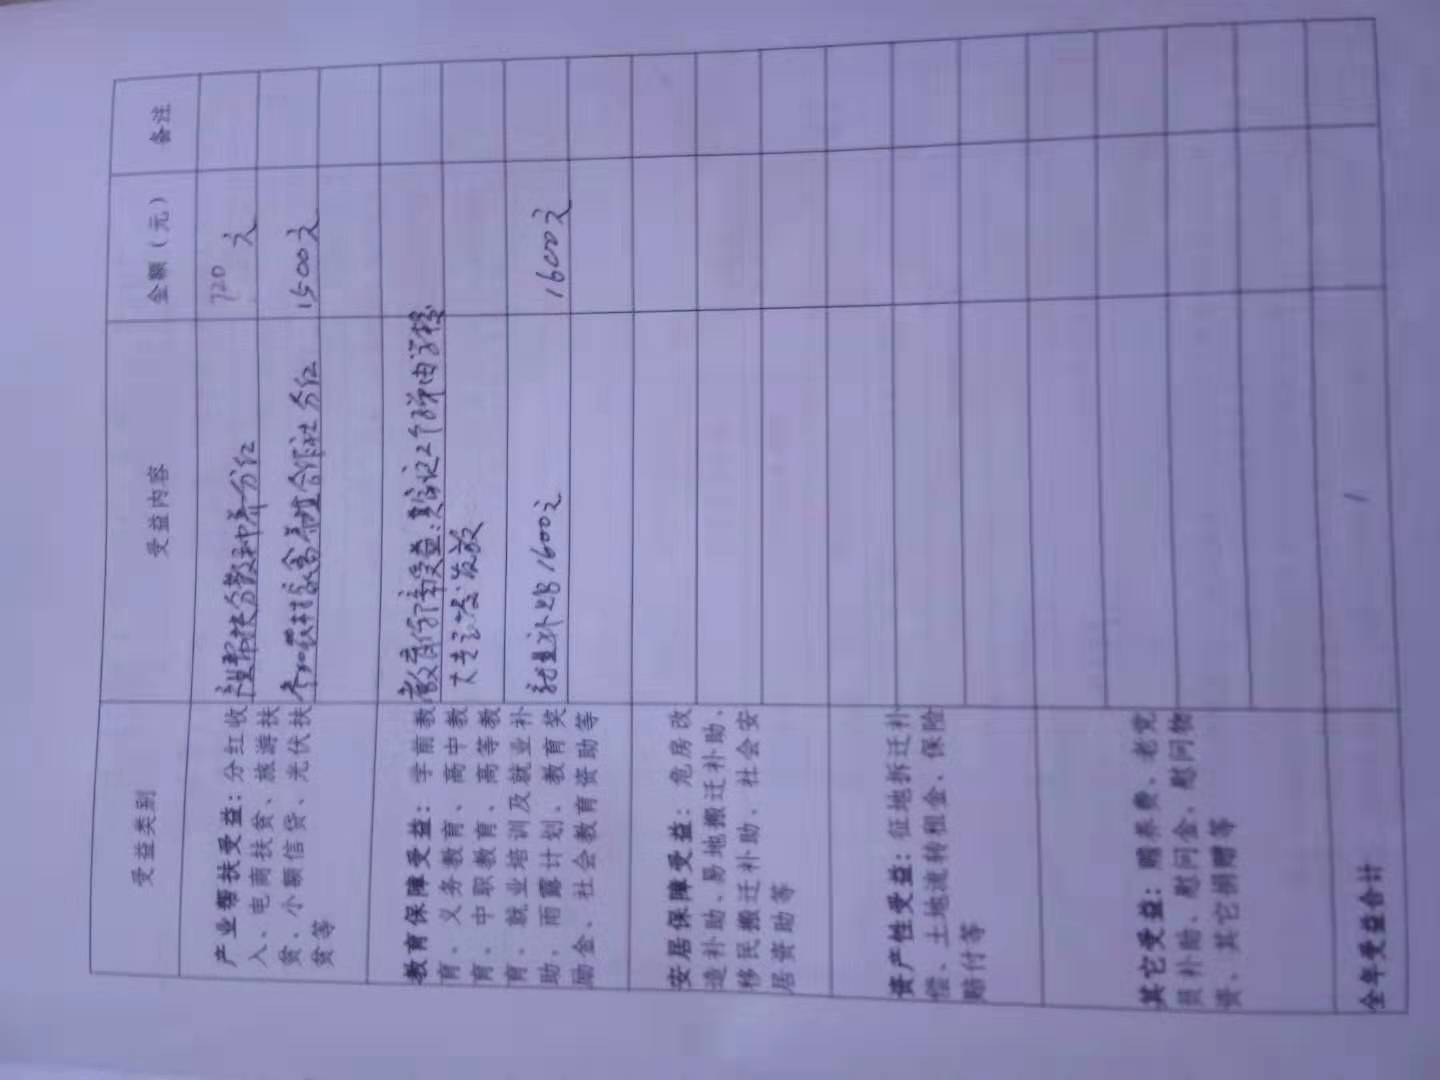 受益类别 受益内容 金额（元） 备注
产业帮扶受益：分红收
入、电商扶贫、旅游扶
贫、小额信贷、光伏扶
贫等
产业帮扶分散种养分红 720元
参加农村家禽养殖合作社分红 1500元
教育保障受益：学前教
育、义务教育、高中教
育、中职教育、高等教
育、就业培训及就业补
助、雨露计划、教育奖
励金、社会教育资助等
教育保障受益： 2个 由学校
发放
就业补助1600元 1600元
安居保障受益：危房改
造补助、易地搬迁补助、
移民搬迁补助、社会安
居资助等
资产性受益：征地拆迁补
偿、土地流转租金、保险
赔付等
其它受益：赡养费、老党
员补助、慰问金、慰问物
资、其它捐赠等
全年受益合计 /